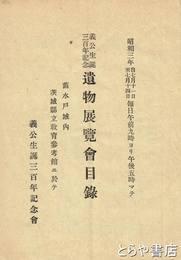 昭和三年自七月十一日至七月十四日毎日午前九時ヨリ午後五時マデ
義公生誕三百年記念遺物展覽會目錄
舊水戸城内
茨城縣立教育參考館ニ於テ
義公生誕三百年記念會
とらや書房